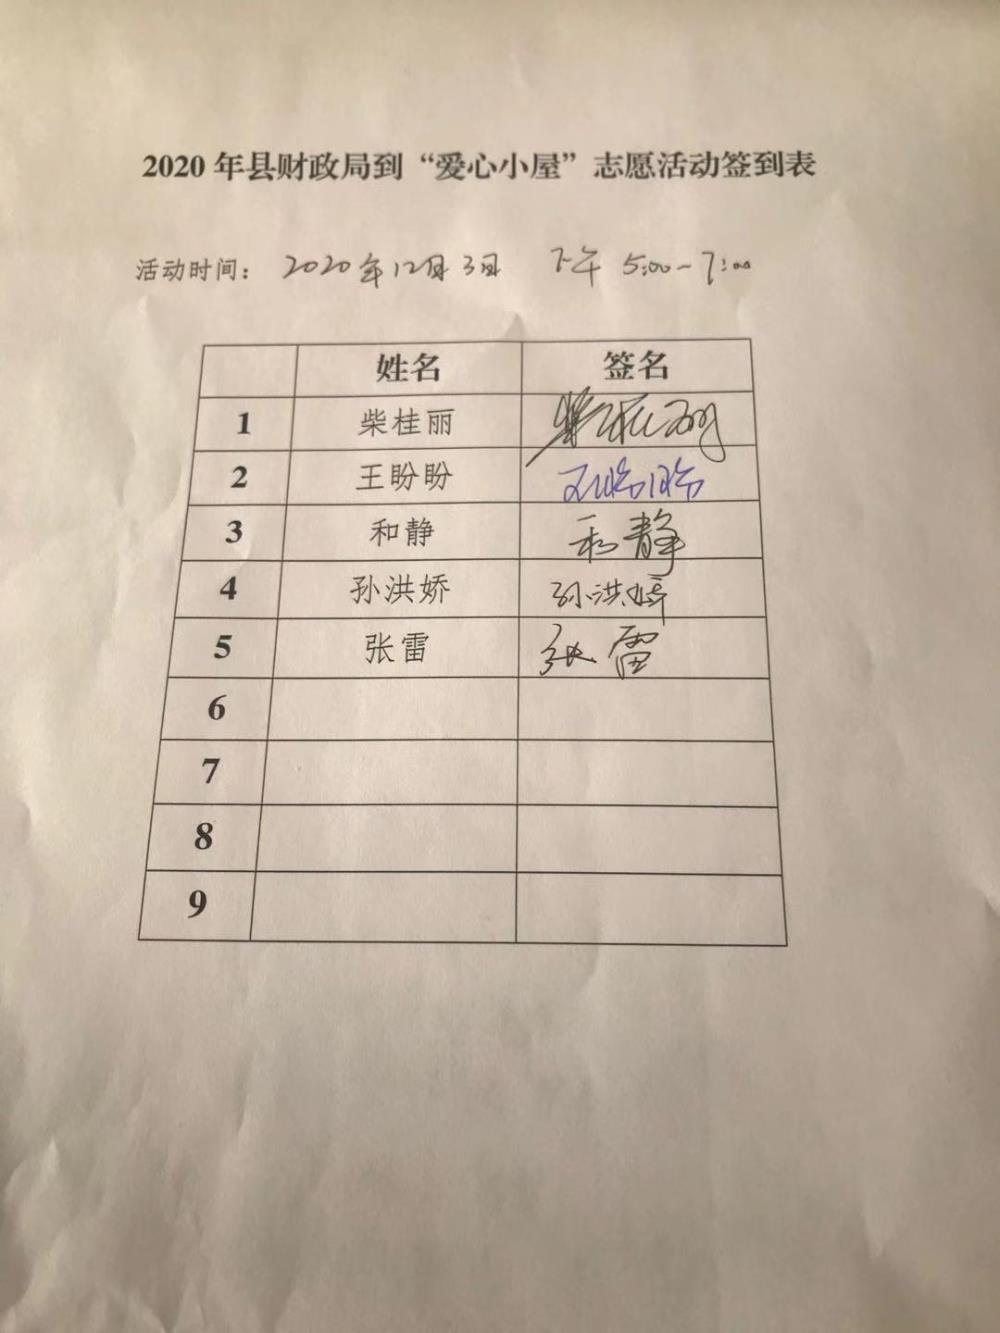 2020 年县财政局到“爱心小屋”志愿活动签到表
活动时间： 2020年12月3日 下午 5:00-7:00
姓名 签名
1 柴桂丽 柴桂丽
2 王盼盼 王盼盼
3 和静 和静
4 孙洪娇 孙洪娇
5 张雷 张雷
6
7
8
9